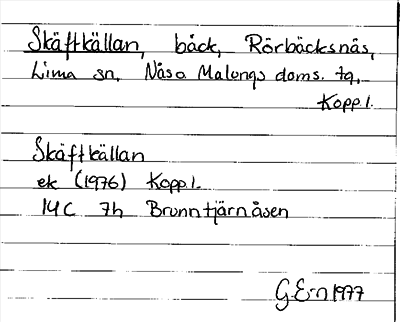 Skäftkällan, bäck, Rörbäcksnäs,
Lima sn, Nåsa Malungs doms. tg,
Kopp l.
Skäftkällan
ek (1976) Kopp l.
14C 7h Brunntjärnåsen
G.E-n 1977